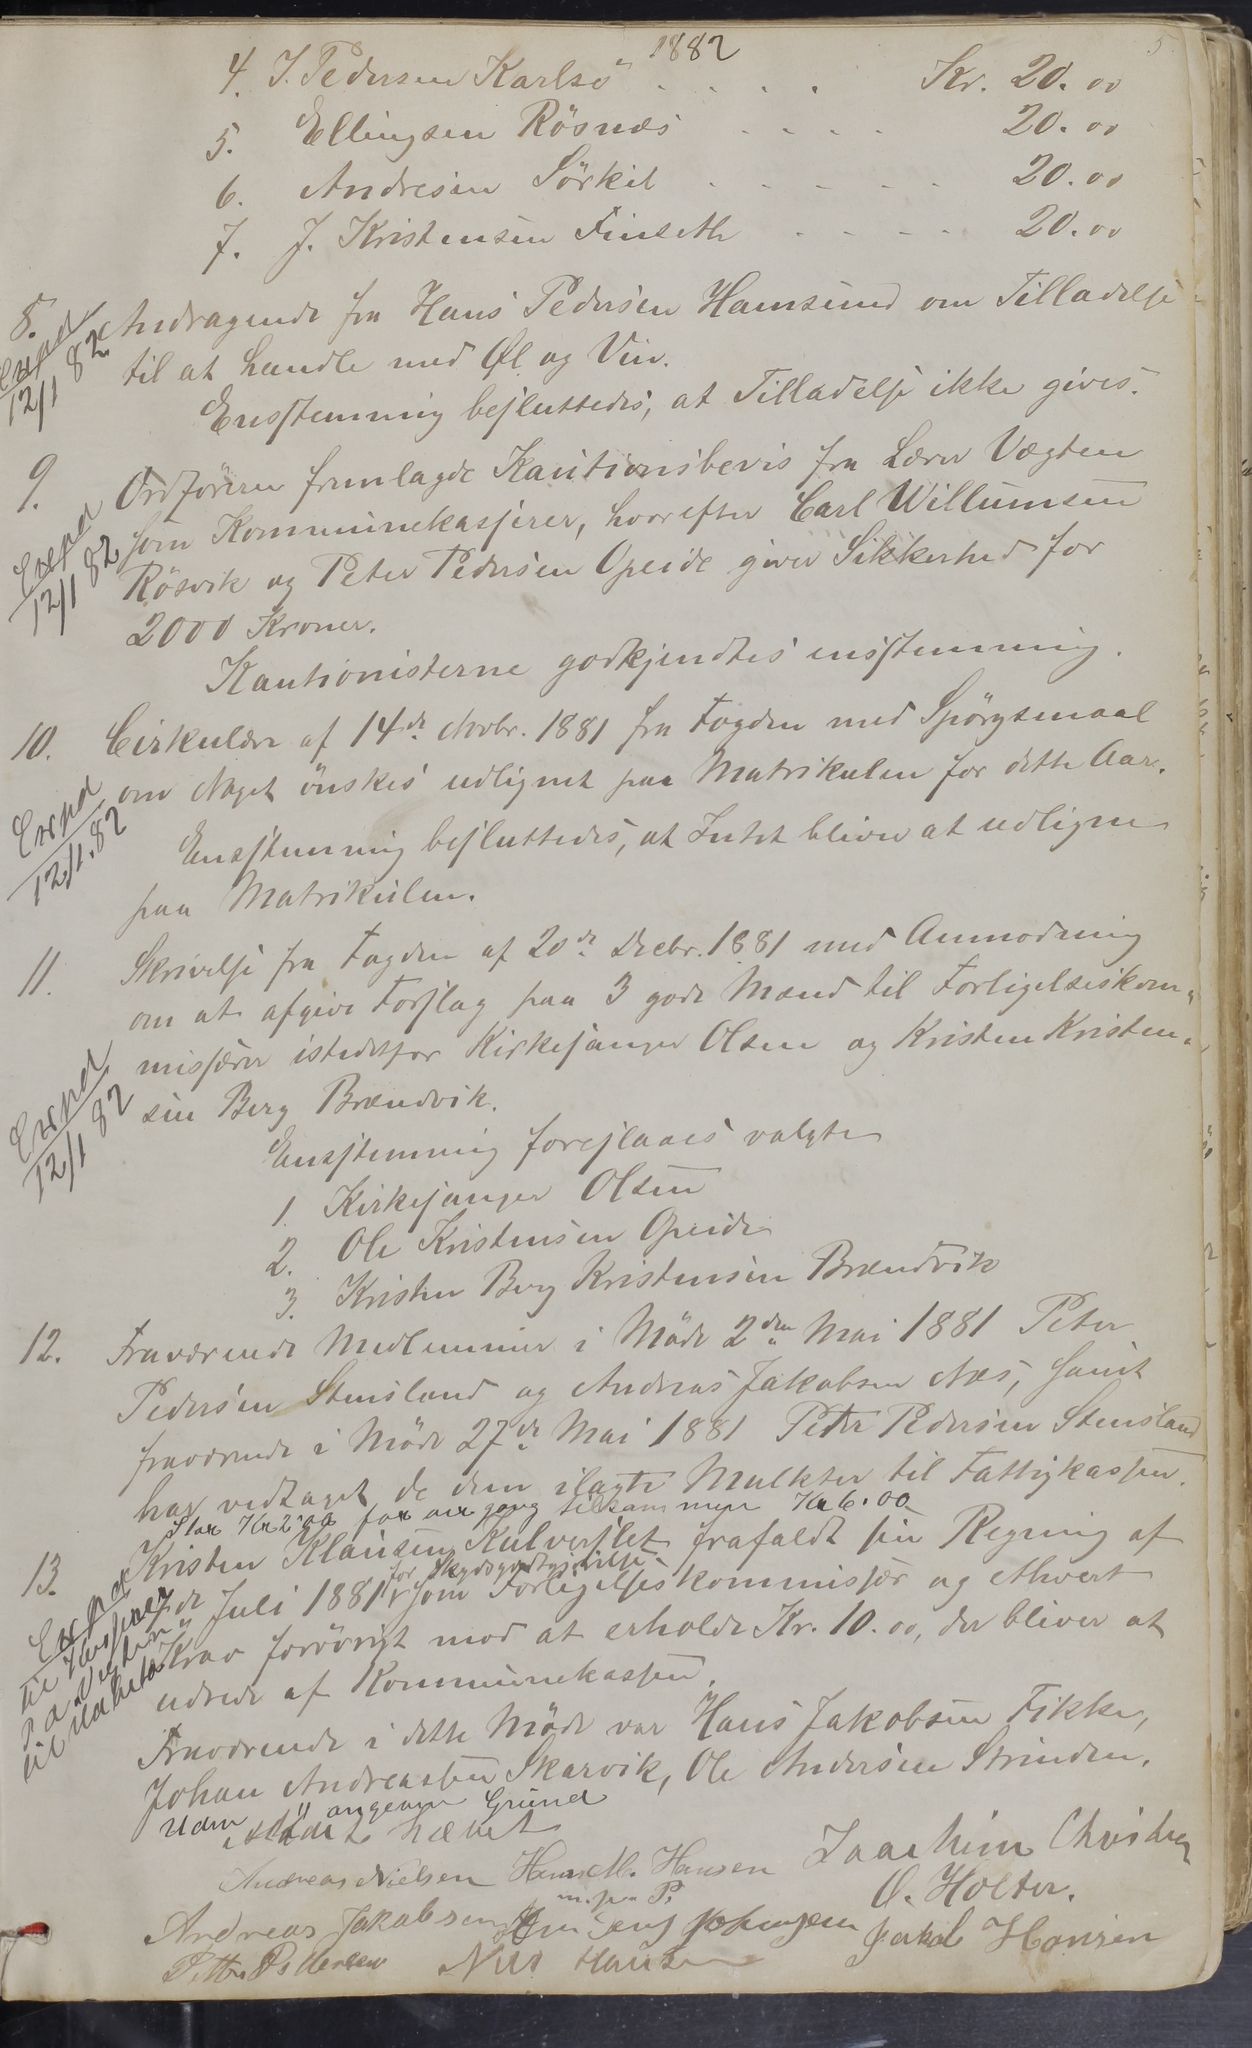 1882
5
4. I. Pedersen Karlsö . . . . Kr. 20.00
5. Ellingsen Rösnæs . . . . 20.00
6. Andresen Sörkil . . . . . . 20.00
7. J. Kristensen Finseth . . . . 20.00
8. Andragende fra Hans Pedersen Hamsund om Tilladelse
Expd 12/1 82
til at handle med Øl og Vin.
Enstemmig besluttedes, at Tilladelse ikke gives.
9. Ordföreren fremlagde Kautionsbevis fra Lærer Vægten
Expd 12/1 82
som Kommunekasserer, hvorefter Carl Willumsen
Rösvik og Peter Pedersen Opeide giver Sikkerhed for
2000 Kroner.
Kautionisterne godkjendtes enstemmig.
10. Cirkulære af 14de Novbr. 1881 fra Fogden med Spörgsmaal
Expd 12/1.82
om Noget önskes udlignet paa Matrikulen for dette Aar.
Enstemmig besluttedes, at Intet bliver at udligne
paa Matrikulen.
11. Skrivelse fra Fogden af 20de Decbr. 1881 med Anmodning
om at afgive Forslag paa 3 gode Mænd til Forligelseskom-
Expd 12/1 82
missærer istedetfor Kirkesanger Olsen og Kristen Kristen-
sen Berg Brændvik.
Enstemmig foreslaaes valgte
1. Kirkesanger Olsen
2. Ole Kristensen Opeide
3. Kristen Berg Kristensen Brændvik
12. Fraværende Medlemmer i Möde 2den Mai 1881 Peter
Pedersen Stensland og Andreas Jakobsen Næs, samt
fraværende i Möde 27de Mai 1881 Peter Pedersen Stensland
har vedtaget de dem ilagte Mulkter til Fattigkassen.
stor Kr 2.00 for en gang tilsammen Kr 6.00
13. Kristen Klausen Kulverslet frafaldt sin Regning af
Expd til
for Skydsgodtgjörelse
de Juli 1881 som Forligelseskommissær og ethvert
Krav forövrigt mod at erholde Kr. 10.00, der bliver at
udrede af Kommunekassen.
Fraværende i dette Möde var Hans Jakobsen Fikke,
Johan Andreassen Skarvik, Ole Andersen Strinden.
Uden angeven Grund
Mödet hævet
Andreas Nielsen Hans M. Hansen Joachim Christensen
m. paa P. O. Holter.
Andreas Jakobsen Jens Johnsen Jakob Hansen
Petter Pedersen Nils Hansen